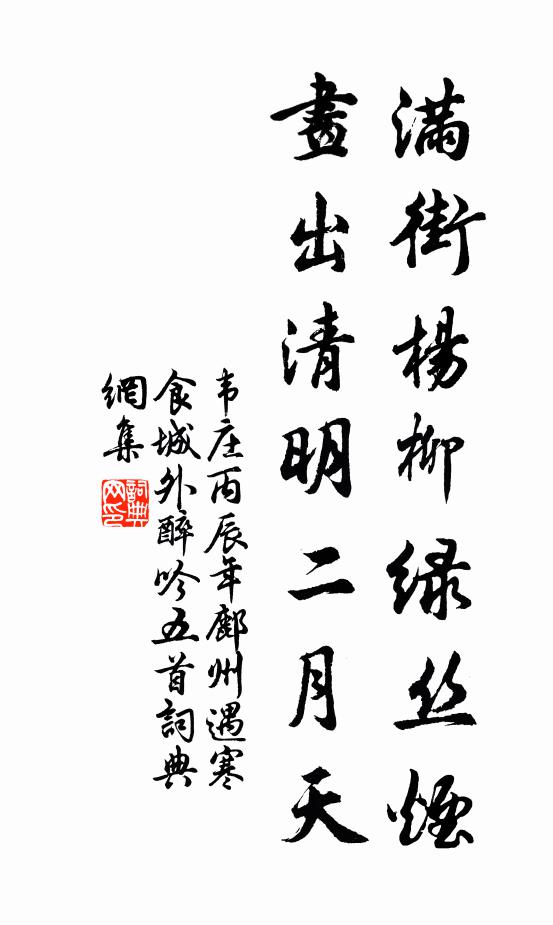 满街杨柳绿丝烟
畫出清明二月天
韦庄丙辰年鄜州遇寒
食城外醉吟五首詞典
網集
詞典網印